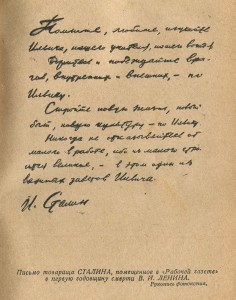 Помните, любите, изучайте
Ильича, нашего учителя, нашего вождя.
Боритесь и побеждайте вра-
гов, внутренних и внешних, – по
Ильичу.
Стройте новую жизнь, новый
быт, новую культуру – по Ильичу.
Никогда не отказывайтесь от
малого в работе, ибо из малого стро-
ится великое, – в этом один из
важных заветов Ильича.
И. Сталин
Письмо товарища СТАЛИНА, помещенное в «Рабочей газете»
в первую годовщину смерти В. И. ЛЕНИНА.
Рукопись-фотокопия.